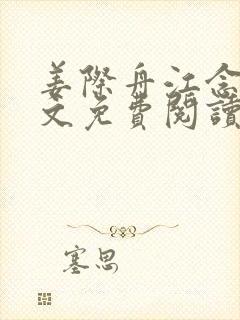 姜際舟江念
文免費閱讀
塞思